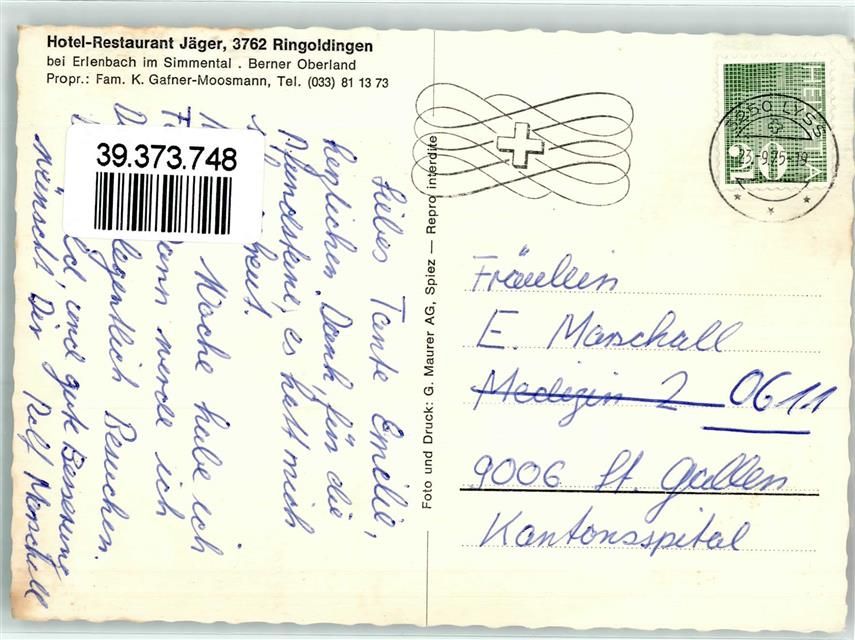 Hotel-Restaurant Jäger, 3762 Ringoldingen
bei Erlenbach im Simmental . Berner Oberland
Propr.: Fam. K. Gafner-Moosmann, Tel. (033) 81 13 73
39.373.748
Liebes Tante Emilie,
herzlichen Dank für die
es hat mich
Woche habe ich
werde ich
Besuchen.
und gute Besserung
wünscht Dir Rolf Marschall
Foto und Druck: G. Maurer AG, Spiez — Repro interdite
HELVETIA
3250 LYSS
23.-9.75-19
Fräulein
E. Marschall
Medizin 2 0611
9006 St. Gallen
Kantonsspital